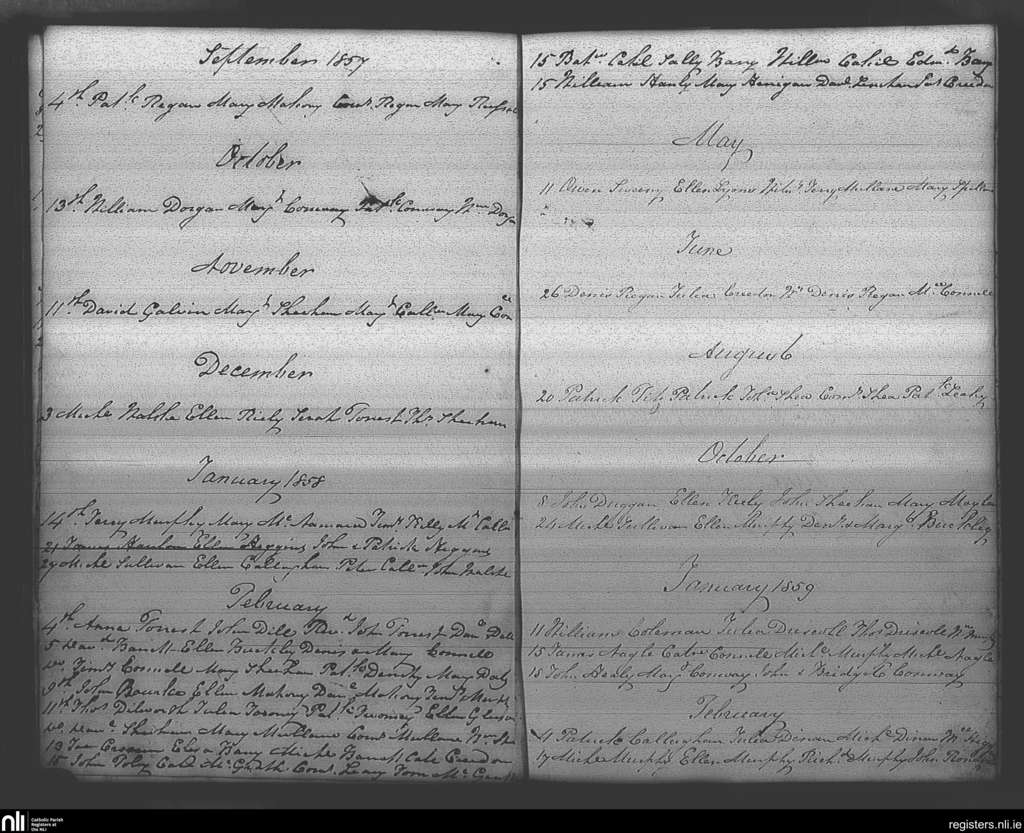 September 1857
4th Patk Regan Mary Mahony Cors. Regan Mary
October
13th William Dorgan Margt Conway Patk Conway Wm Dorgan
November
11th David Galvin Margt Sheehan Margt Calln Mary Con
December
3 Michl Walshe Ellen Riely Sarah Forrest Ths Sheehan
January 1858
14th Terry Murphy Mary McNamara Timy Kelly
21 James Hanlon Ellen Higgins John & Patrick Higgins
29 Michl Sullivan Ellen Callinghan Peter Calln John Walshe
February
4th Anna Forrest John Dill Revd John Forrest
5 Barrett Ellen Buckley Denis & Mary Connell
Timy Connell Mary Sheehan Patk Mary Daly
9th John Bourke Ellen Mahony Danl Mahony Timy Murphy
11th Thos Dilworth Julia Twomy Patk Twomey Ellen Gleeson
Sheehan Mary Mullane Cors Mullane Wm
13 Eliza Barry Michl Barrett Cate Creedon
15 John Foley Cate McGrath Cors. Leary Tom McGrath
15 Batw Cahil Sally Barry Willm Cahil Edmd Barry
15 William Hanly Mary Henigan Davd Linehan Creedon
May
11 Owen Sweeny Ellen Lyons Terry Mullane Mary
June
26 Denis Regan Julia Creedon Denis Regan Connell
August
20 Patrick Fitz Patrick Shea Cors Shea Patk Leahy
October
8 John Duggan Ellen Kiely John Sheehan Mary
24 Michl Sullivan Ellen Murphy Denis & Margt Foley
January 1859
11 William Coleman Julia Driscoll Thos Driscole Wm Murphy
15 James Nagle Cate Connele Michl Murphy Michl Nagle
18 John Healy Margt Conway John & Bridget Conway
February
4 Patrick Callinghan Julia Dinan Michl Dinan
17 Michl Murphy Ellen Murphy Richd Murphy John
nli
Catholic Parish
Registers at
the NLI
registers.nli.ie